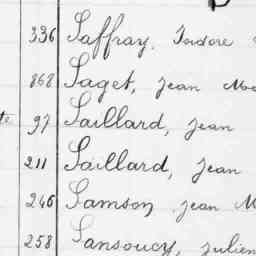 336 Saffray, Isidore
868 Saget, Jean
97 Saillard, Jean
211 Saillard, Jean
246 Samson Jean M
258 Sansoucy, Julien